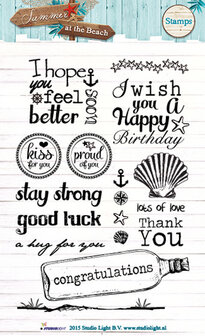 Summer
at the Beach
Stamps
I hope
you
feel
better
soon
I wish
you A
Happy
Birthday
kiss
for you
proud
of you
stay strong
good luck
a hug for you
lots of love
Thank
You
congratulations
STUDIOLIGHT
2015 Studio Light B.V. www.studiolight.nl